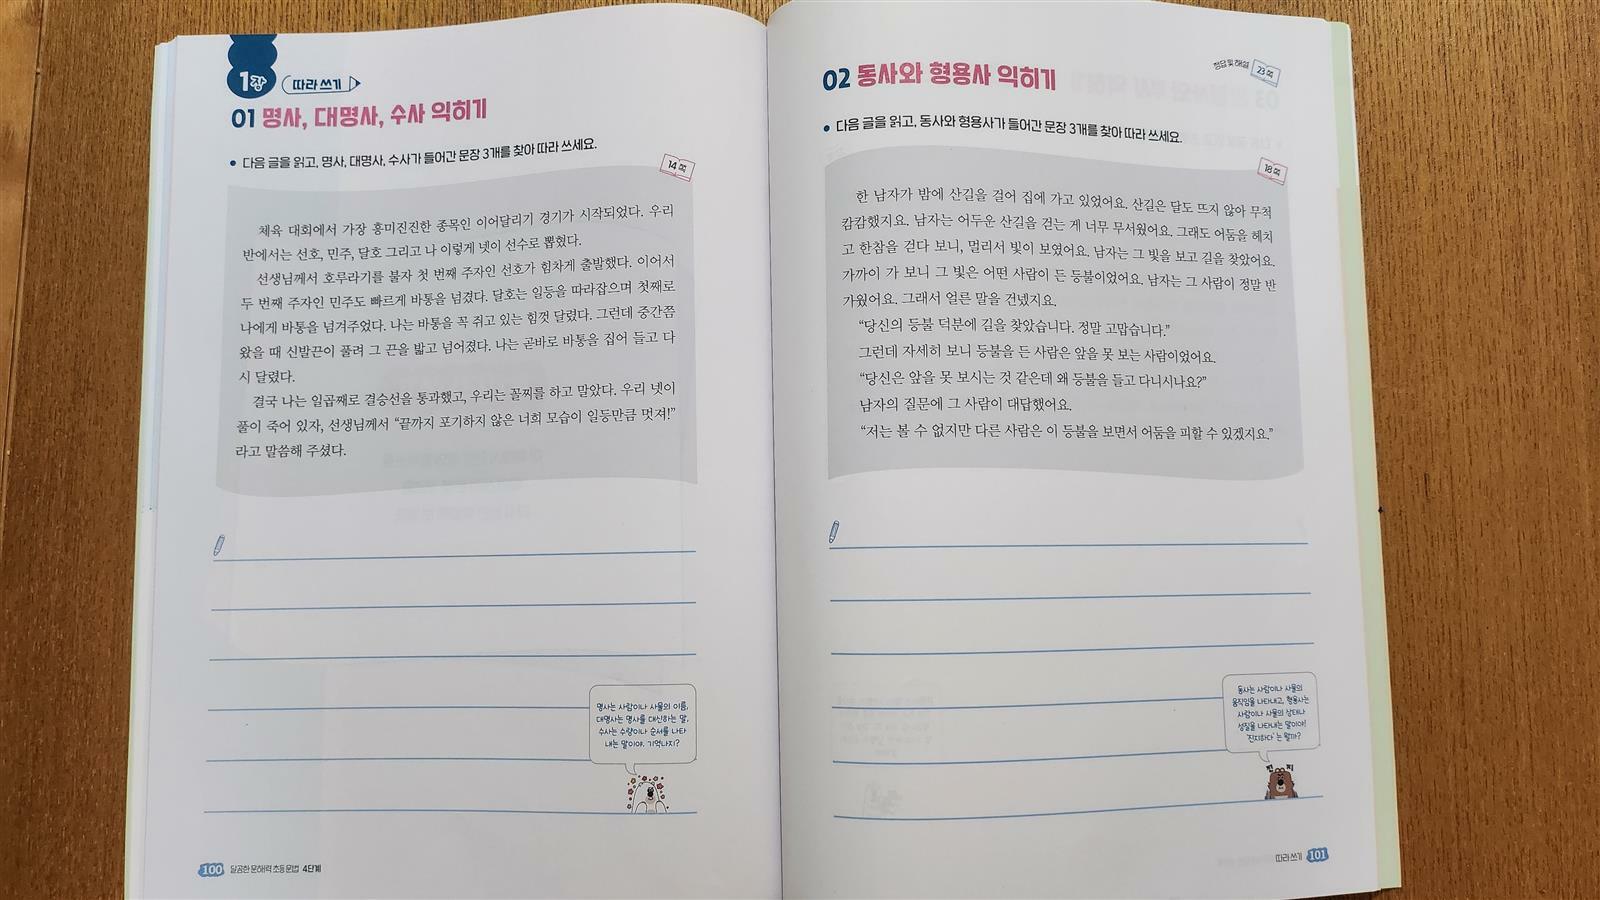 1장 따라 쓰기
01 명사, 대명사, 수사 익히기
• 다음 글을 읽고, 명사, 대명사, 수사가 들어간 문장 3개를 찾아 따라 쓰세요.
14쪽
체육 대회에서 가장 흥미진진한 종목인 이어달리기 경기가 시작되었다. 우리
반에서는 선호, 민주, 달호 그리고 나 이렇게 넷이 선수로 뽑혔다.
선생님께서 호루라기를 불자 첫 번째 주자인 선호가 힘차게 출발했다. 이어서
두 번째 주자인 민주도 빠르게 바통을 넘겼다. 달호는 일등을 따라잡으며 첫째로
나에게 바통을 넘겨주었다. 나는 바통을 꼭 쥐고 있는 힘껏 달렸다. 그런데 중간쯤
왔을 때 신발끈이 풀려 그 끈을 밟고 넘어졌다. 나는 곧바로 바통을 집어 들고 다
시 달렸다.
결국 나는 일곱째로 결승선을 통과했고, 우리는 꼴찌를 하고 말았다. 우리 넷이
풀이 죽어 있자, 선생님께서 “끝까지 포기하지 않은 너희 모습이 일등만큼 멋져!”
라고 말씀해 주셨다.
명사는 사람이나 사물의 이름,
대명사는 명사를 대신하는 말,
수사는 수량이나 순서를 나타
내는 말이야. 기억나지?
100 달곰한 문해력 초등 문법 4단계
02 동사와 형용사 익히기
정답 및 해설 23쪽
• 다음 글을 읽고, 동사와 형용사가 들어간 문장 3개를 찾아 따라 쓰세요.
18쪽
한 남자가 밤에 산길을 걸어 집에 가고 있었어요. 산길은 달도 뜨지 않아 무척
캄캄했지요. 남자는 어두운 산길을 걷는 게 너무 무서웠어요. 그래도 어둠을 헤치
고 한참을 걷다 보니, 멀리서 빛이 보였어요. 남자는 그 빛을 보고 길을 찾았어요.
가까이 가 보니 그 빛은 어떤 사람이 든 등불이었어요. 남자는 그 사람이 정말 반
가웠어요. 그래서 얼른 말을 건넸지요.
“당신의 등불 덕분에 길을 찾았습니다. 정말 고맙습니다.”
그런데 자세히 보니 등불을 든 사람은 앞을 못 보는 사람이었어요.
“당신은 앞을 못 보시는 것 같은데 왜 등불을 들고 다니시나요?”
남자의 질문에 그 사람이 대답했어요.
“저는 볼 수 없지만 다른 사람은 이 등불을 보면서 어둠을 피할 수 있겠지요.”
동사는 사람이나 사물의
움직임을 나타내고, 형용사는
사람이나 사물의 상태나
성질을 나타내는 말이야!
‘진지하다’는 뭘까?
따라 쓰기 101